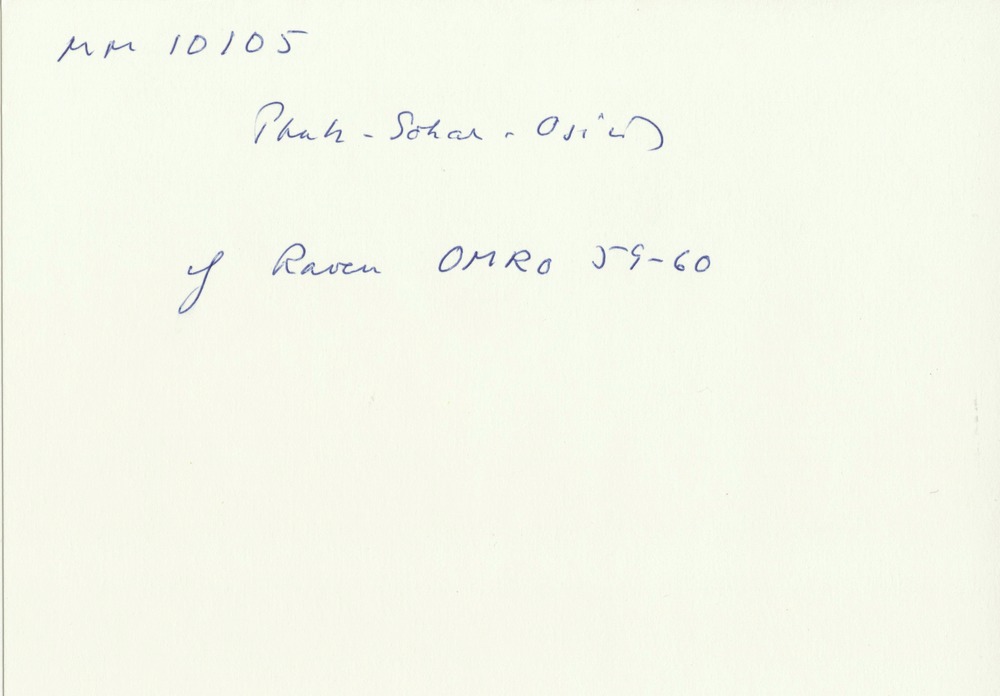 MM 10105
Ptah - Sokar - Osiris
cf Raven OMRO 59-60